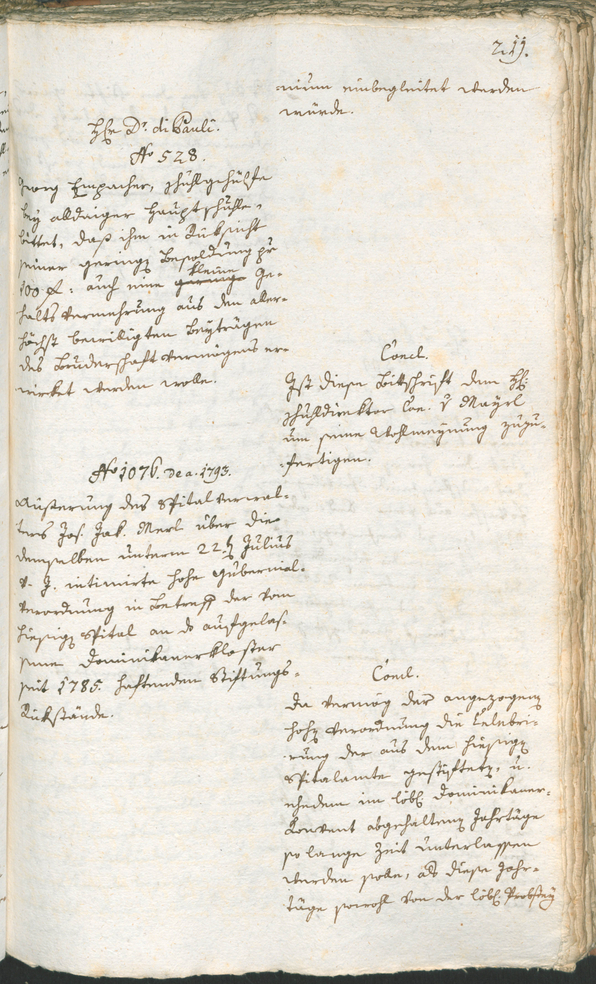 211.
nium einbegleitet werden
würde.
Hr. Dr. di Pauli.
No 528.
Georg Empacher, Schuhlgehülfe
bey allhiesiger Hauptschuhle,
bittet, daß ihm in Rüksicht
seiner geringen Besoldung pr
100 f: auch eine kleine Ge-
halts vermehrung aus den aller-
höchst bewilligten Beyträgen
des Bruderschaft vermögens er-
wirket werden wolle.
Concl.
Ist diese Bittschrift dem H:
Schuhldirektor Can. v Mayrl
um seine Wohlmeynung zuzu-
fertigen.
No 1076. de a. 1793.
Äußerung des Spitalverwal-
ters Jos. Jak. Merl über die
demselben unterm 22t Julius
v. J. intimirte hohe Gubernial-
verordnung in Betreff der vom
hiesigen Spital an das aufgelas-
sene Dominikanerkloster
seit 1785. haftenden Stiftungs-
Rükstände.
Concl.
Da vermög der angezogenen
hohen Verordnung die Celebri-
rung der aus dem hiesigen
Spitalamte gestifteten, u.
ehedem im löbl. Dominikaner-
Konvent abgehaltenen Jahrtäge
so lange Zeit unterlassen
werden solle, als diese Jahr-
täge sowohl von der löbl. Probstey